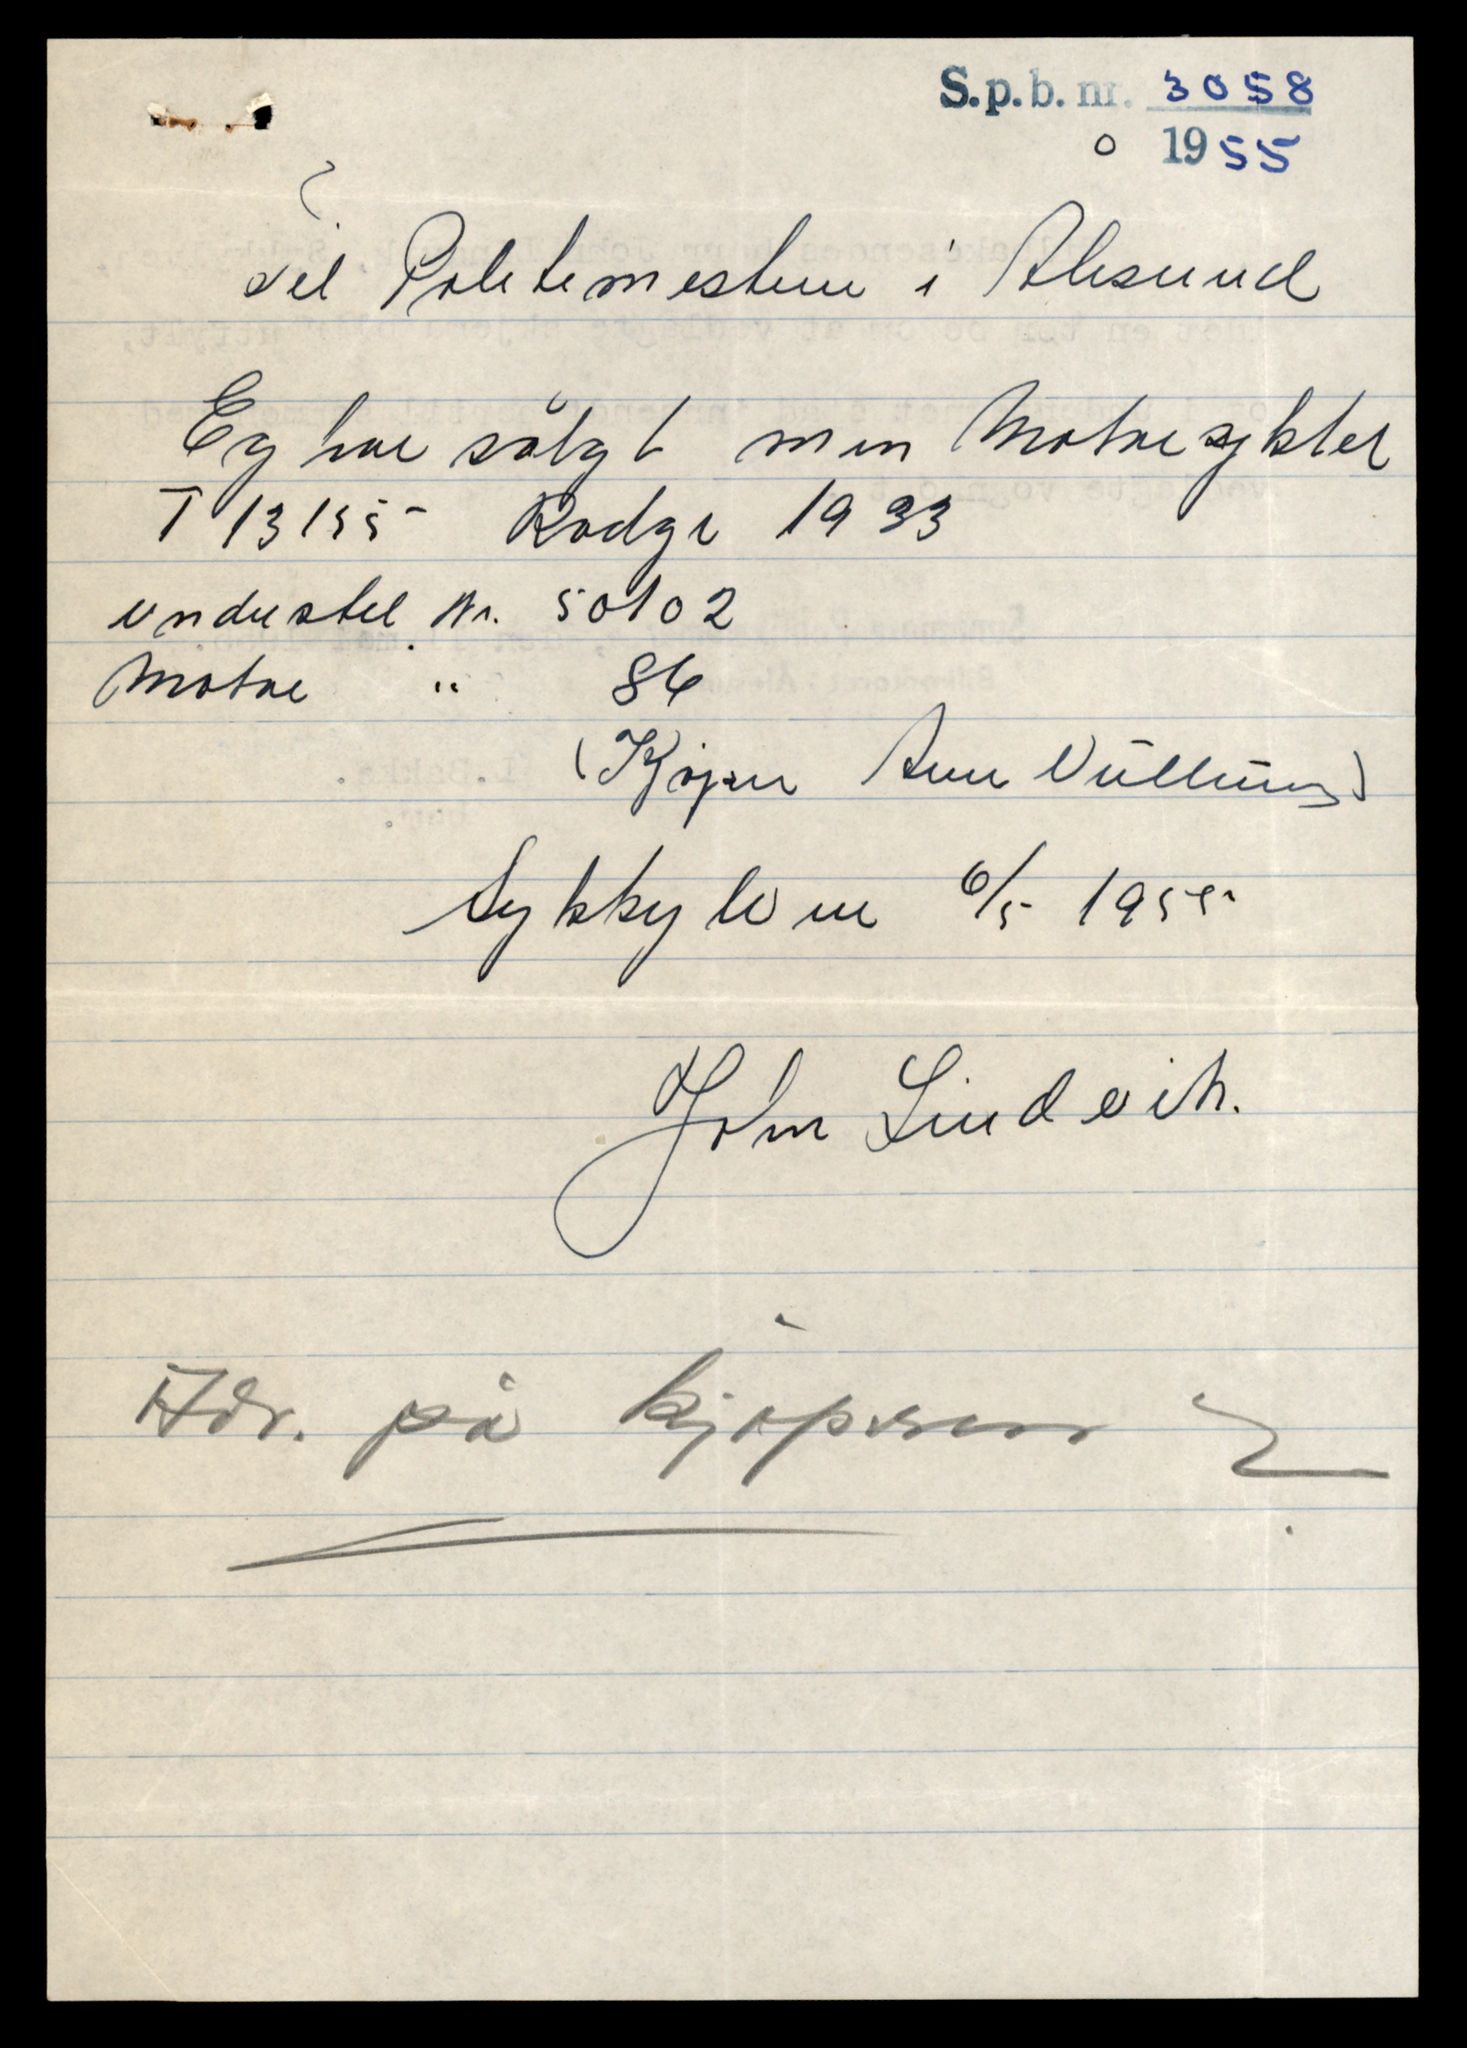 S.p.b. nr. 3058
1955
Til Politimesteren i Alesund
Eg har sålgt min Motorsykkel
T 13155 Rudge 1933
understel Nr. 50102
Motor " 86
(Kjøper
Sykkylven 6/5 1955
John Lindvik.
Adr. på kjøperen ?